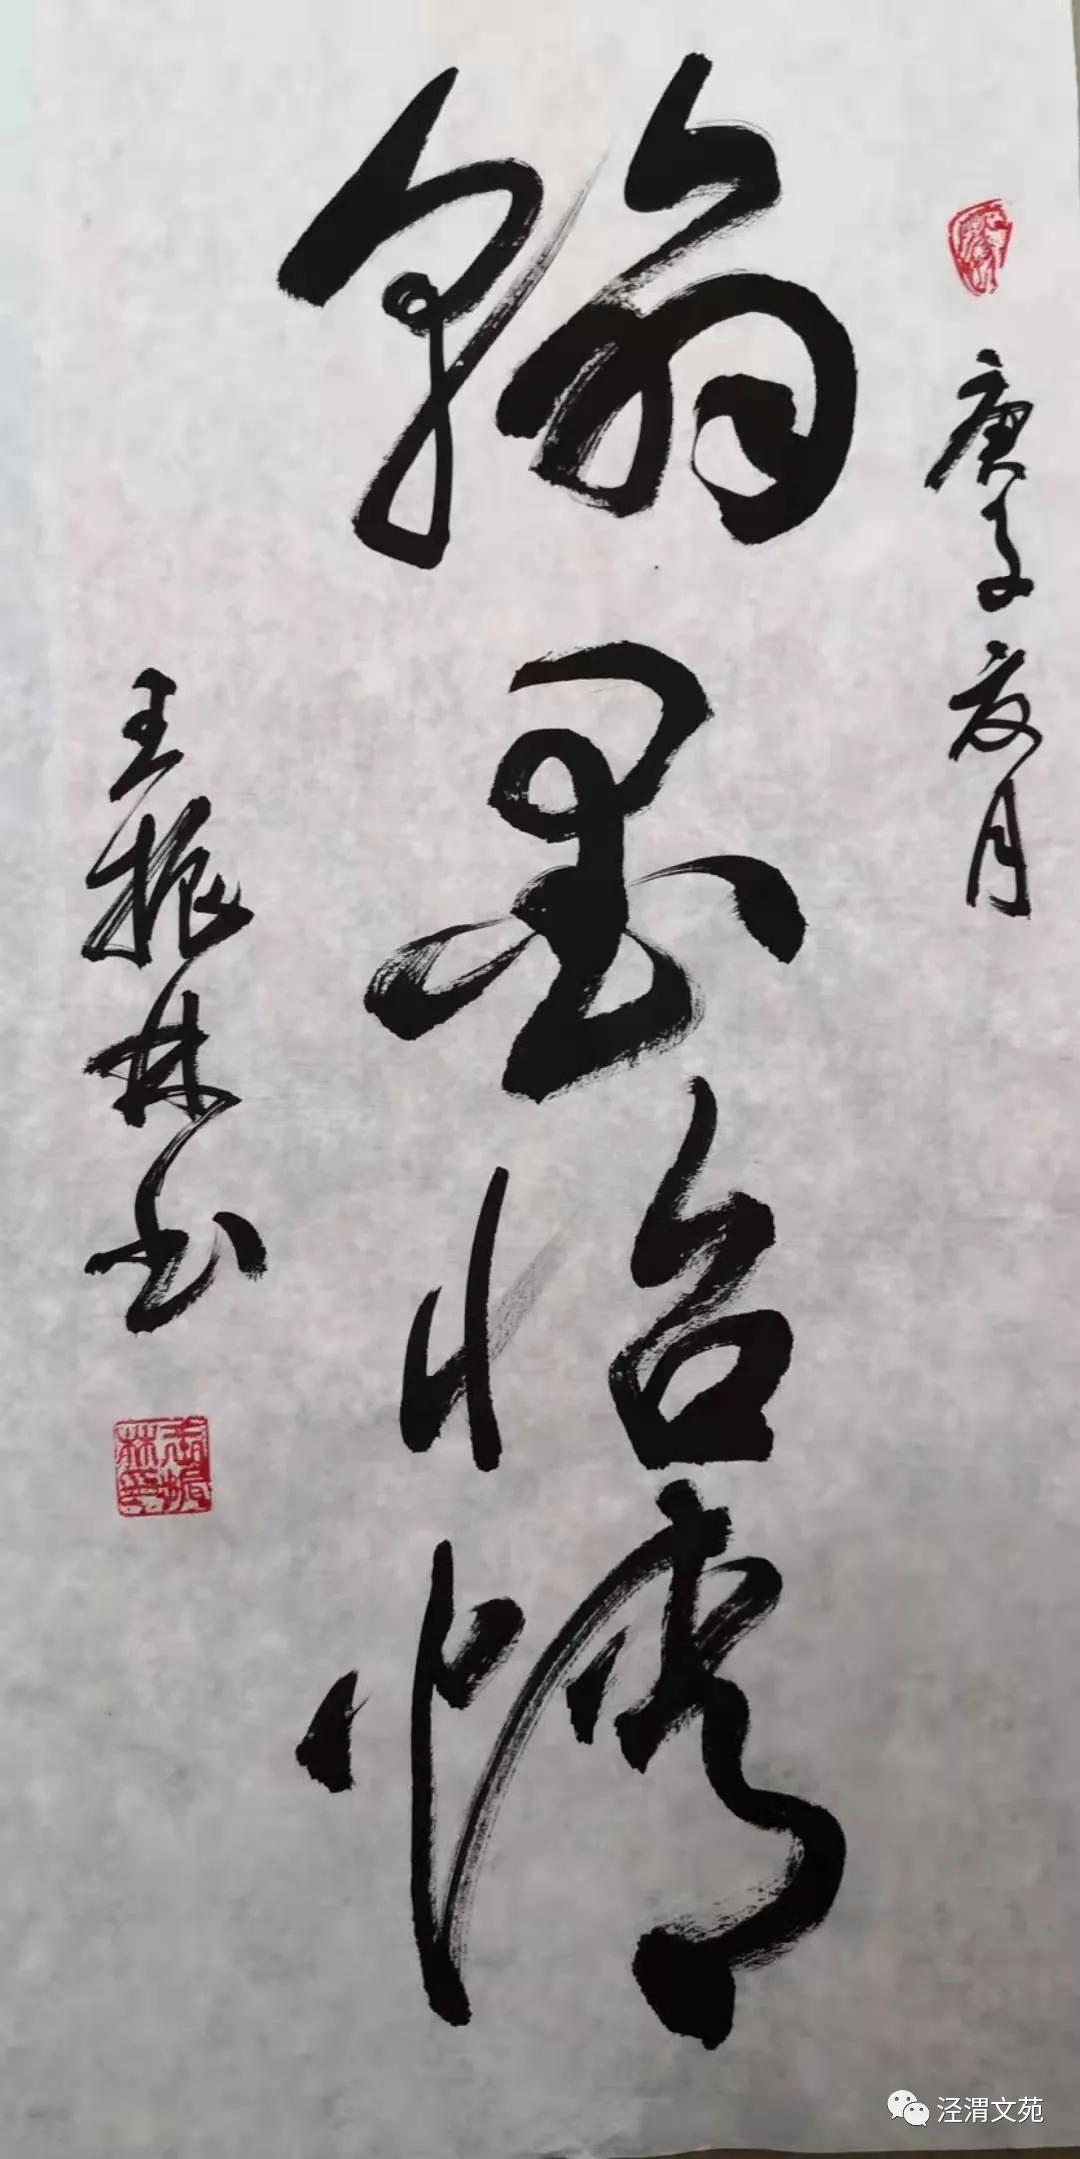 庚子夏月
翰墨怡情
王振林书
泾渭文苑